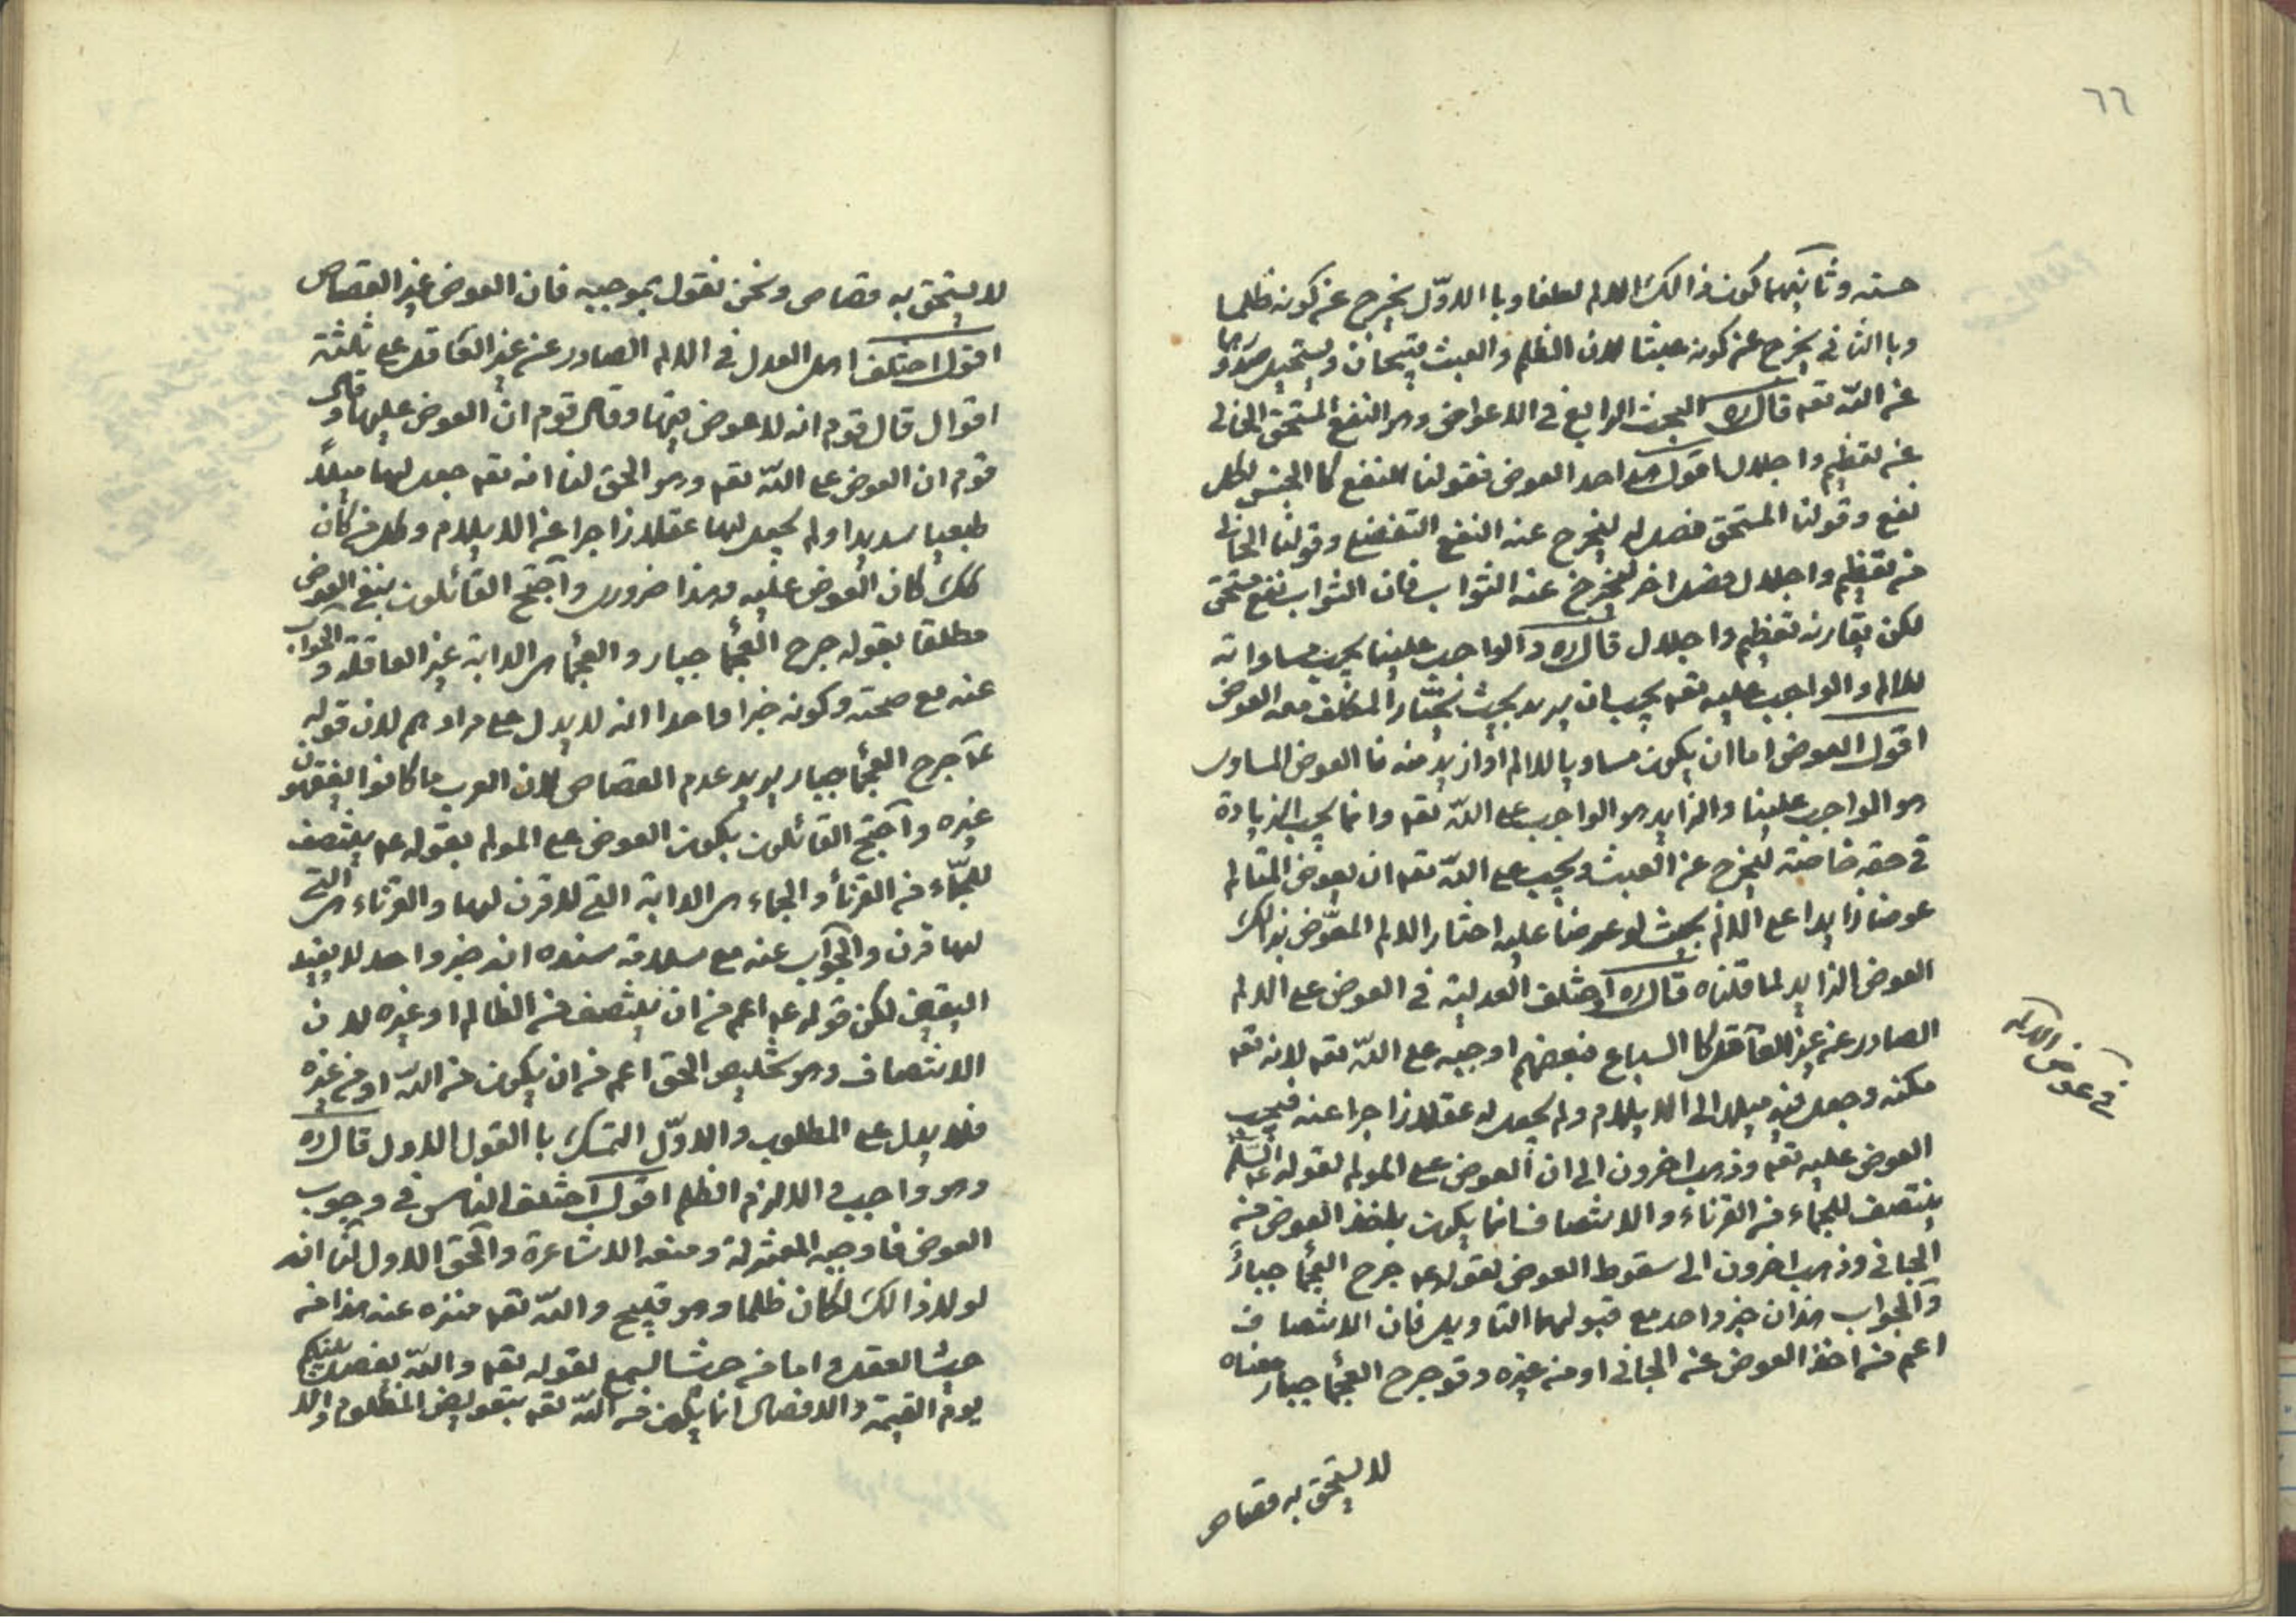 ٦٦
حسنه وثانيهما كون ذالك الالم لطفا وبا الاوّل يخرج عن كونه ظلما
وبا الثانى يخرج عن كونه عبثا لان الظلم والعبث قبيحان ويستحيل صدورهما
عن اللّه تعه قال ره البحث الرابع فى الاعواض وهو النفع المستحق الخالى
عن تعظيم واجلال اقول هذا حد العوض فقولنا النفع كا الجنس لكل
نفع وقولنا المستحق فصل له ليخرج عنه النفع التفضلى وقولنا الخالى
من تعظيم واجلال فصل اخر ليخرج عنه الثواب فان الثواب نفع مستحق
لكن يقارنه تعظيم واجلال قال ره والواجب علينا يجب مساواته
للالم والواجب عليه تعه يجب ان يزيد بحيث يختار المكلف معه العوض
اقول العوض اما ان يكون مساويا للالم او ازيد منه فا العوض المساوى
هو الواجب علينا والزايد هو الواجب على اللّه تعه وانما يجب الزيادة
فى حقه خاصة ليخرج عن العبث ويجب على اللّه تعه ان يعوض المتالم
عوضا زايدا على الالم بحيث لو عرضنا عليه اختار الالم المعوّض بذالك
العوض الزايد لما قلناه قال ره اختلف العدلية فى العوض على الالم
الصادر عن غير العاقل كا السباع فبعضهم اوجبه على اللّه تعه لانه تعه
مكنه وجعل فيه ميلا الى الايلام ولم يجعل له عقلا زاجرا عنه فيجب
العوض عليه تعه وذهب اخرون الى ان العوض على المولم لقوله عليه السلم
ينتصف للجماء من القرناء والانتصاف انما يكون باخذ العوض من
الجانى وذهب اخرون الى سقوط العوض لقوله عه جرح العجما جبارً
والجواب هذان خبر واحد مع قبولهما التاويل فان الانتصاف
اعم من اخذ العوض عن الجانى او من غيره وقو جرح العجما جبار معناه
لا يستحق به قصاص
فى عوض الالم
لا يستحق به قصاص ونحن نقول بموجبه فان العوض غير القصاص
اقول اختلف اهل العدل فى الالم الصادر عن غير العاقل على ثلثة
اقوال قال قوم انه لا عوض فيها وقال قوم ان العوض عليها وقال
قوم ان العوض على اللّه تعه وهو الحق لنا انه تعه جعل لها ميلاً
طبعيا شديدا ولم يجعل لها عقلا زاجرا عن الايلام وكل من كان
كك كان العوض عليه وهذا ضرورى واحتج القائلون بنفى العوض
مطلقا بقوله جرح العجما جبار والعجما هى الدابة غير العاقلة والجواب
عنه مع صحته وكونه خبرا واحدا انه لا يدل على مرادهم لان قوله
عه جرح العجما جبار يريد عدم القصاص لان العرب ما كانوا يفقهون
غيره واحتج القائلون بكون العوض على المولم بقوله عه ينتصف
للجمّاء من القرنأ والجماء هى الدابة التى لا قرن لها والقرناء هى التى
لها قرن والجواب عنه مع سلامة سنده انه خبر واحد لا يفيد
اليقين لكن قوله عه اعم من ان ينتصف من الظالم او غيره لان
الانتصاف وهو تخليص الحق اعم من ان يكون من اللّه او من غيره
فلا يدل على المطلوب والاوّل التمسك با القول الاول قال ره
وهو واجب والا لزم الظلم اقول اختلف الناس فى وجوب
العوض فاوجبه المعتزلة ومنعه الاشاعرة والحق الاول لنا انه
لو لا ذالك لكان ظلما وهو قبيح واللّه تعه منزه عنه هذا من
حيث العقل واما من حيث السمع لقوله تعه واللّه يفصل بينكم
يوم القيمة والافصال انما يكون من اللّه تعه بتعويض المظلوم والا